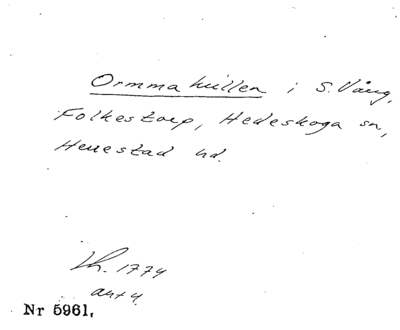 Ormmakullen i S. Vång,
Folkestorp, Hedeskoga sn,
Herrestad hd.
Lh. 1774
Nr 5961.